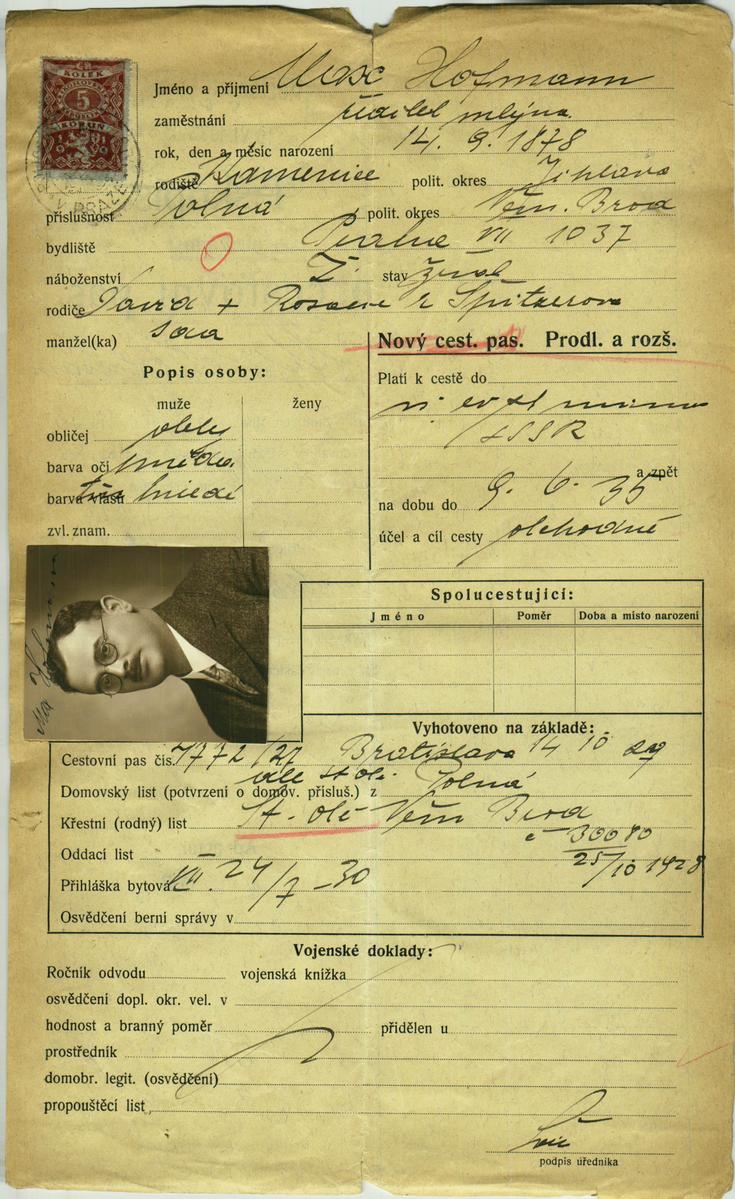 KOLEK
5
KORUN
V PRAZE
Jméno a příjmení Max Hofmann
zaměstnání ředitel mlýna
rok, den a měsíc narození 14. 9. 1878
rodiště Kamenice polit. okres Jihlava
příslušnost polit. okres Něm. Brod
bydliště Praha VII 1037
náboženství ž. stav ženat
rodiče David + Rosalie r. Spitzerova
manžel(ka)
Nový cest. pas. Prodl. a rozš.
Popis osoby:
muže ženy
obličej
barva očí hnědé
barva vlasů hnědé
zvl. znam.
Platí k cestě do
mimo
SSSR
a zpět
na dobu do 9. 6. 35
účel a cíl cesty obchodně
Max Hofmann
Spolucestující:
Jméno Poměr Doba a místo narození
Vyhotoveno na základě:
Cestovní pas čís. 7772/27 Bratislava 14 10 27
Domovský list (potvrzení o domov. přísluš.) z
Křestní (rodný) list Něm Brod
30080
Oddací list 25/10 1928
Přihláška bytová VII. 24/7 -30
Osvědčení berní správy v
Vojenské doklady:
Ročník odvodu vojenská knížka
osvědčení dopl. okr. vel. v
hodnost a branný poměr přidělen u
prostředník
domobr. legit. (osvědčení)
propouštěcí list
podpis úředníka